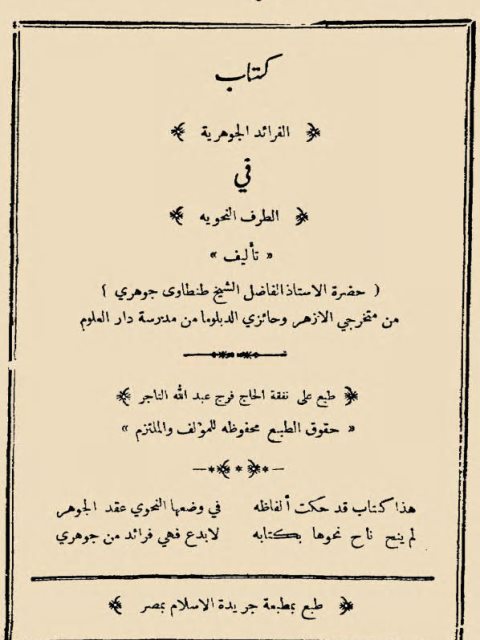 كتاب
الفرائد الجوهرية
في
الطرف النحويه
« تأليف »
( حضرة الاستاذ الفاضل الشيخ طنطاوى جوهري )
من متخرجي الازهر وحائزي الدبلوما من مدرسة دار العلوم
طبع على نفقة الحاج فرج عبد الله التاجر
« حقوق الطبع محفوظه للمؤلف والملتزم »
هذا كتاب قد حكت ألفاظه في وضعها النحوي عقد الجوهر
لم ينح ناح نحوها بكتابه لابدع فهي فرائد من جوهري
طبع بمطبعة جريدة الاسلام بمصر